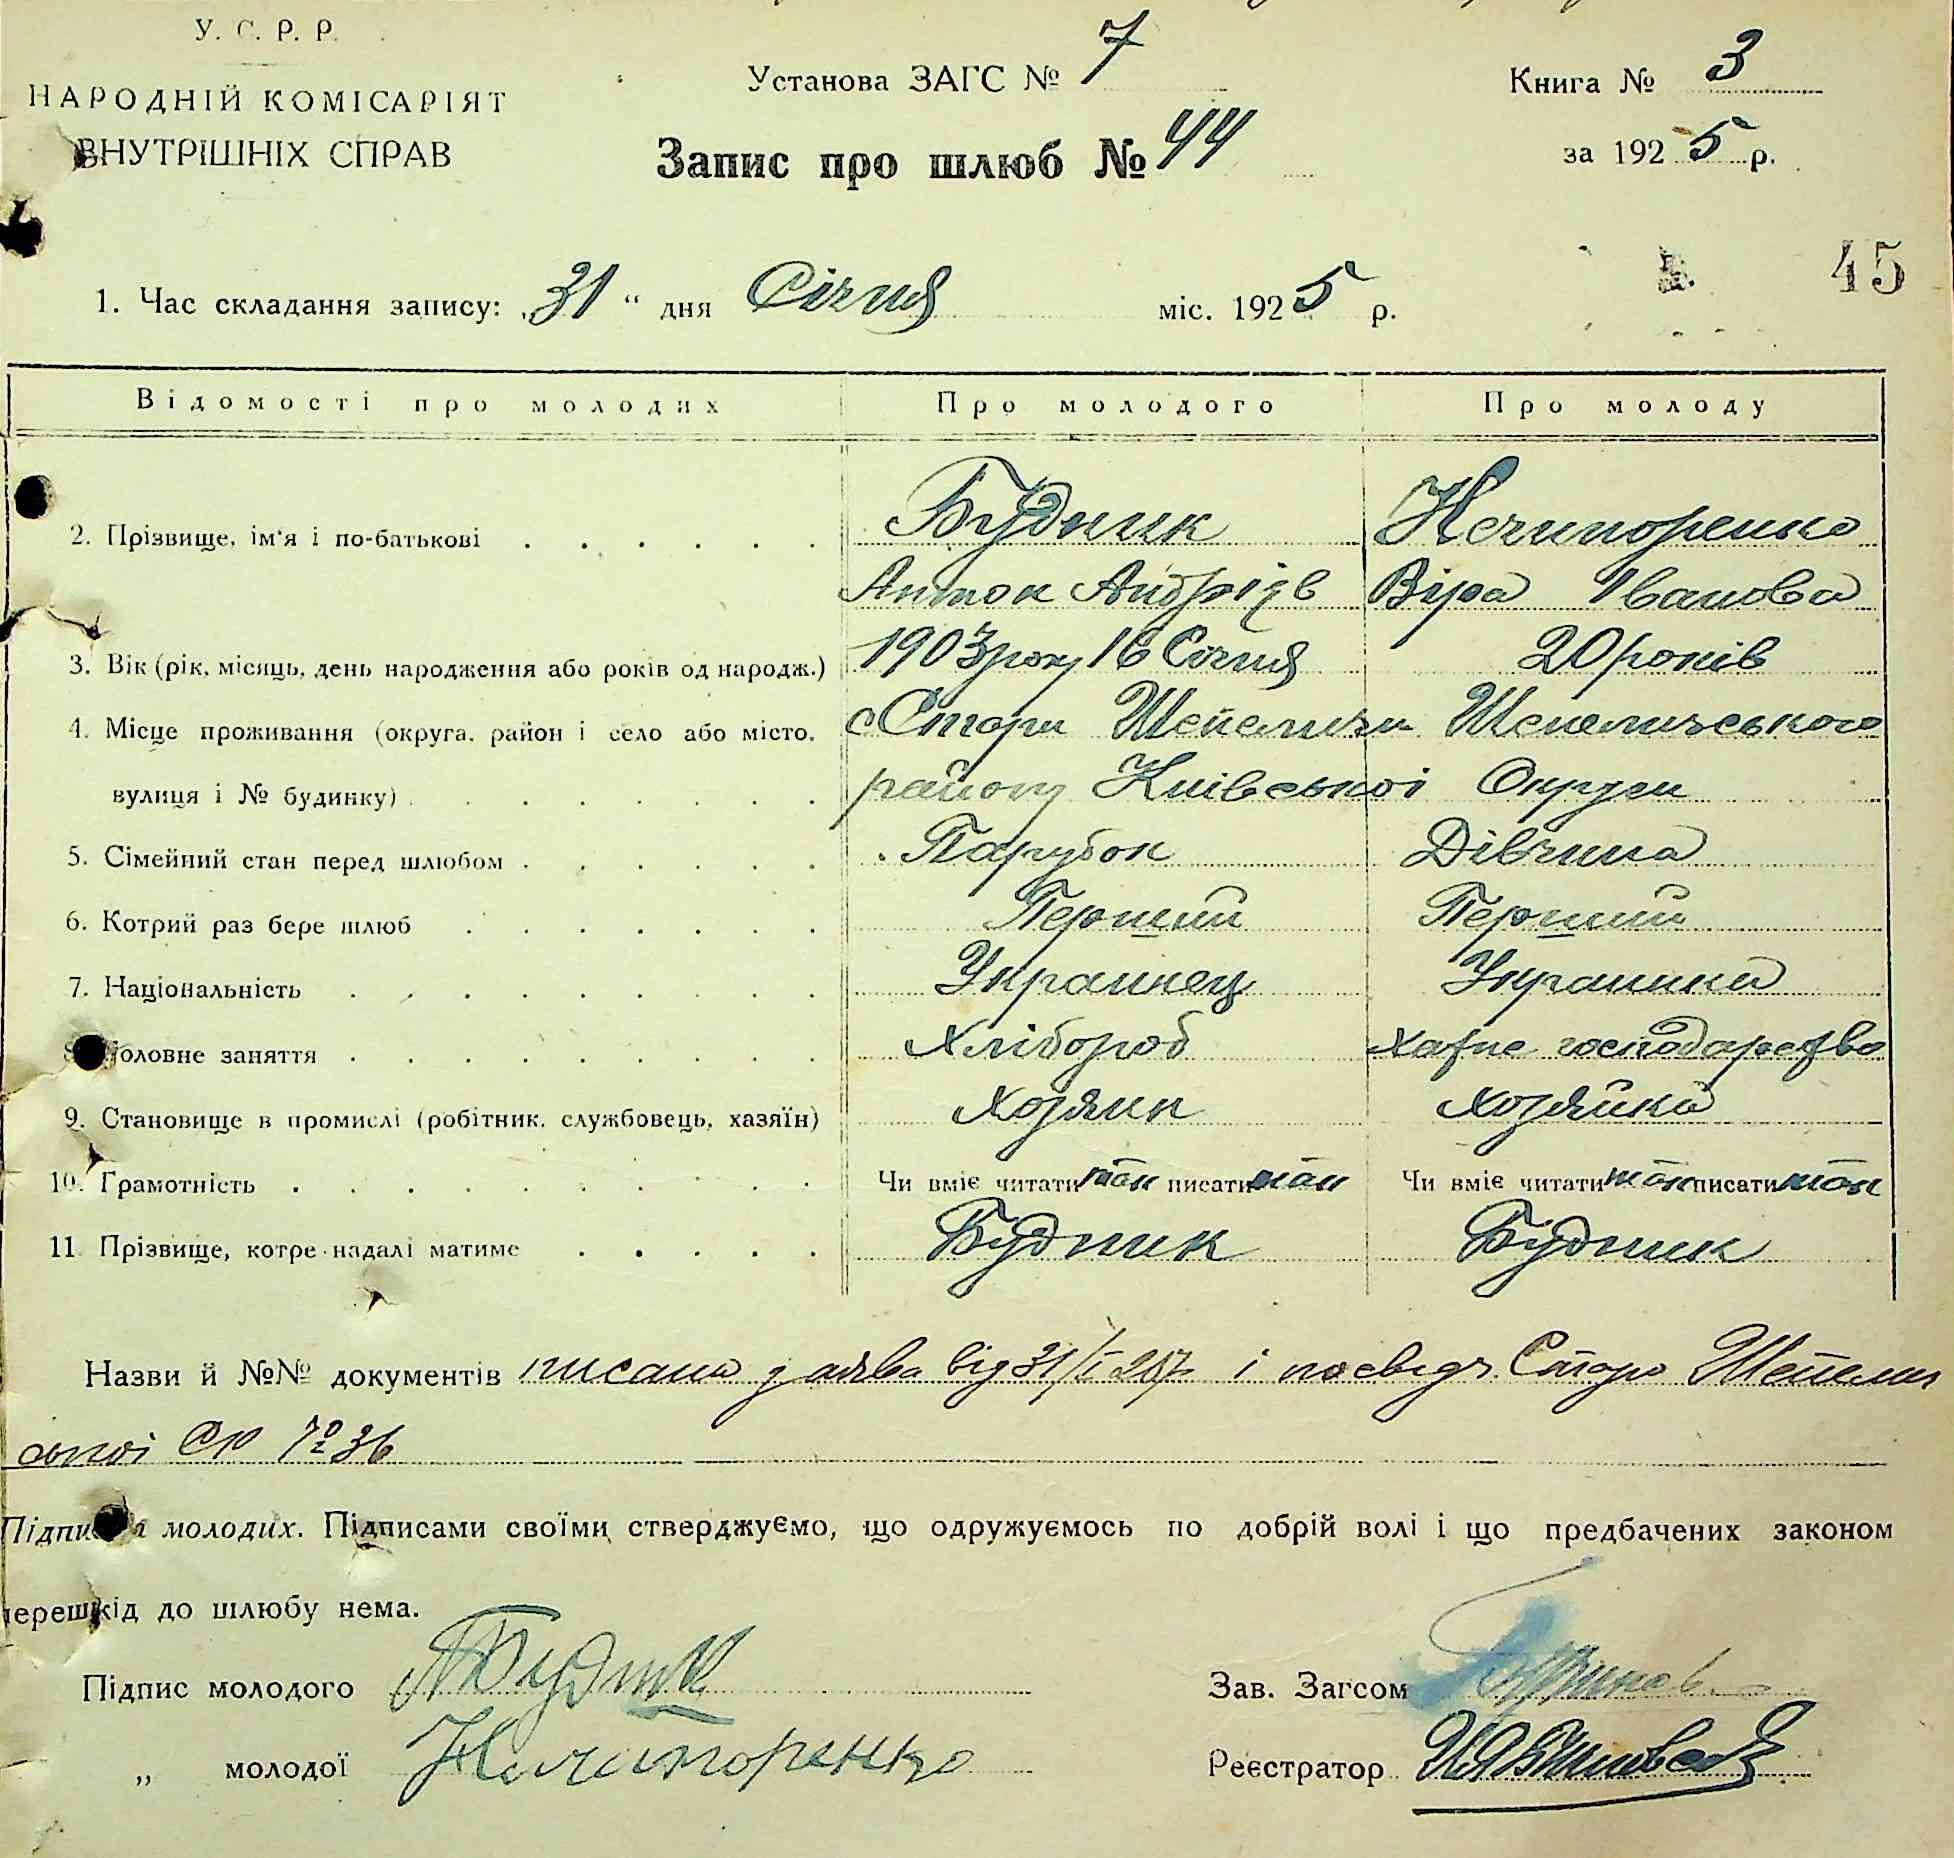 У. С. Р. Р.
НАРОДНІЙ КОМІСАРІЯТ
ВНУТРІШНІХ СПРАВ
Установа ЗАГС № 7
Книга № 3
Запис про шлюб № 44
за 1925 р.
45
1. Час складання запису: „31“ дня Січня міс. 1925 р.
Відомості про молодих Про молодого Про молоду
2. Прізвище, ім'я і по-батькові Будник Нечипоренко
Антон Андріїв Віра Іванова
3. Вік (рік, місяць, день народження або років од народж.) 1903 року 16 Січня 20 років
4. Місце проживання (округа, район і село або місто, с Стари Шепеличи Шепелического
вулиця і № будинку) району Київської Округи
5. Сімейний стан перед шлюбом Парубок Дівчина
6. Котрий раз бере шлюб Перший Перший
7. Національність Украинец Украинка
8. Головне заняття Хлібороб Хатне господарство
9. Становище в промислі (робітник, службовець, хазяїн) Хозяин Хозяйка
10. Грамотність Чи вміє читати так писати так Чи вміє читати так писати так
11. Прізвище, котре надалі матиме Будник Будник
Назви й №№ документів писана заява від 31/I 25р і посвідч. Старо Шепелич
ської СР № 36
Підписи молодих. Підписами своїми стверджуємо, що одружуємось по добрій волі і що предбачених законом
перешкід до шлюбу нема.
Підпис молодого Будник
Зав. Загсом
„ молодої Нечипоренко
Реєстратор